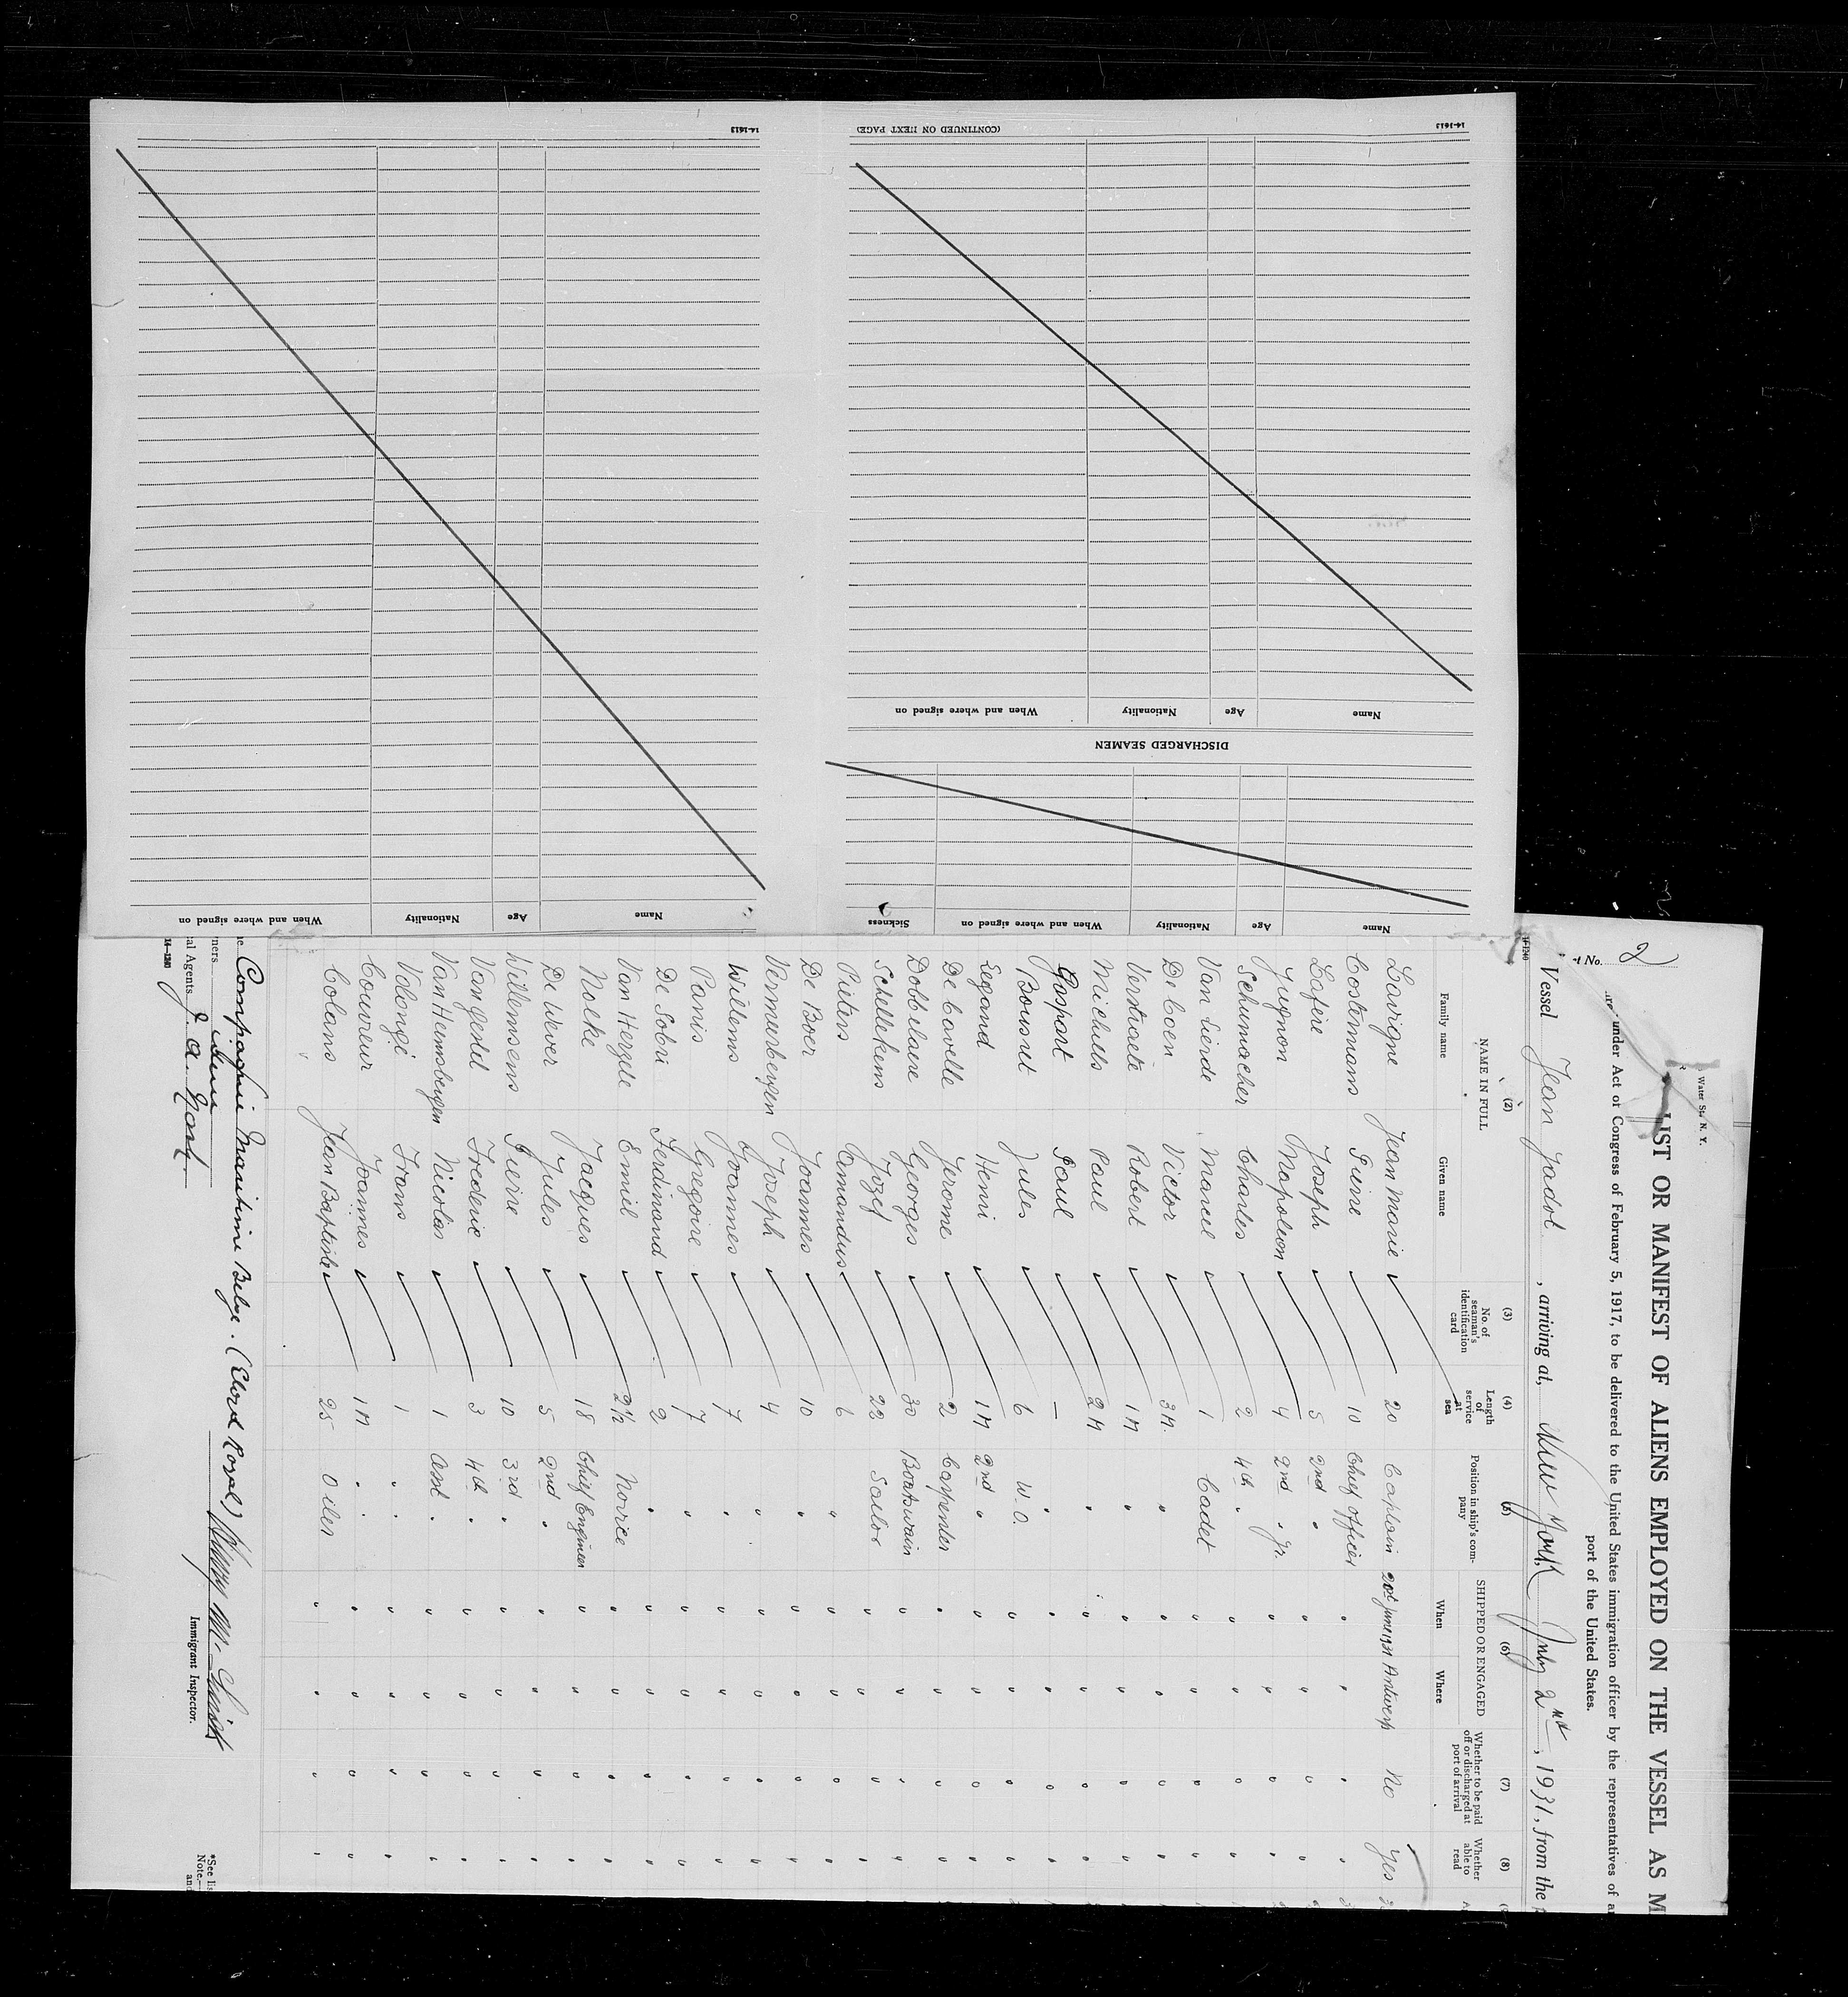 14-1613
(CONTINUED ON NEXT PAGE)
14-1613
When and where signed on Nationality Age Name
DISCHARGED SEAMEN
Name Age Nationality When and where signed on Sickness
Name Age Nationality When and where signed on
t No. 2
Water St., N. Y.
LIST OR MANIFEST OF ALIENS EMPLOYED ON THE VESSEL AS M
under Act of Congress of February 5, 1917, to be delivered to the United States immigration officer by the representatives of a
port of the United States.
Vessel Jean Jadot, arriving at, New York July 2nd, 1931, from the
(2) (3) (4) (5) (6) (7) (8)
NAME IN FULL No. of seaman's identification card Length of service at sea Position in ship's company SHIPPED OR ENGAGED Whether to be paid off or discharged at port of arrival Whether able to read
Family name Given name When Where
Lavigne Jean Marie 20 Captain 20st June 1931 Antwerp No Yes
Costermans Pierre 10 Chief Officer " " " "
Lafire Joseph 5 2nd " " " " "
Jugnon Napoleon 4 2nd " Jr. " " " "
Schumacher Charles 2 4th " " " " "
Van Lierde Marcel 1 Cadet " " " "
De Coen Victor 3 M. " " " " "
Verstraete Robert 1 M " " " " "
Michiels Paul 2 M " " " " "
Gaspart Paul — " " " " "
Bousut Jules 6 W.O. " " " "
Legand Henri 1 M 2nd " " " " "
De Cavelle Jerome 2 Carpenter " " " "
Dobbelaere Georges 30 Boatswain " " " "
Schellekens Jozef 22 Sailor " " " "
Pieters Amandus 6 " " " " "
De Boer Joannes 10 " " " " "
Vermeerbergen Joseph 4 " " " " "
Willems Joannes 7 " " " " "
Panis Gregoire 7 " " " " "
De Sobri Ferdinand 2 " " " " "
Van Herzele Emiel 2½ Novice " " " "
Nolke Jacques 18 Chief Engineer " " " "
De Wever Jules 5 2nd " " " " "
Willemsens Pierre 10 3rd " " " " "
Van gestel Frederic 3 4th " " " " "
Van Hemsbergen Nicolas 1 Asst. " " " " "
Volongé Frans 1 " " " " " "
Couvreur Joannes 1 M " " " " " "
Colans Jean Baptiste 25 Oiler " " " "
Compagnie Maritime Belge. (Lloyd Royal)
ners Same
al Agents J. A. North
14-1240
Immigrant Inspector.
*See lis
Note.—
and